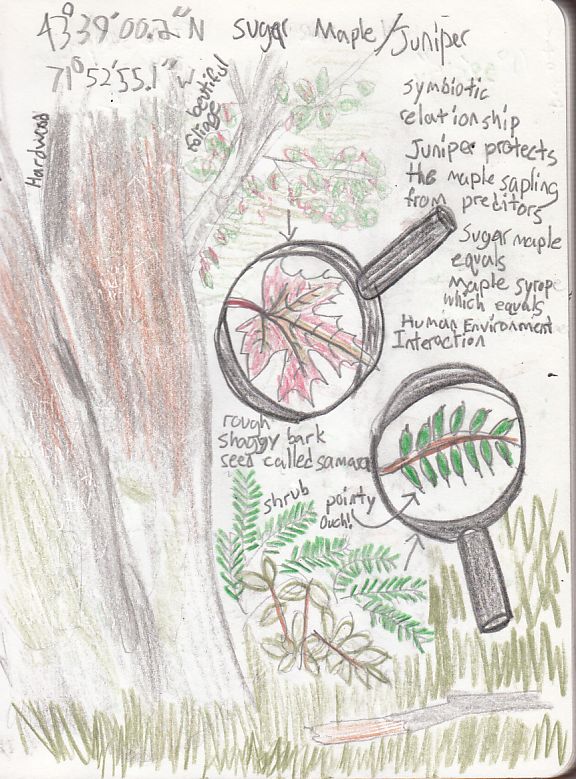 43°39'00.2"N Sugar Maple/Juniper
71°52'55.1"W
beutiful
foliage
Hardwood
symbiotic
relationship
Juniper protects
the maple sapling
from preditors
Sugar maple
equals
Maple syrop
which equals
Human Environment
Interaction
rough
shaggy bark
seed called samara
shrub
pointy
Ouch!